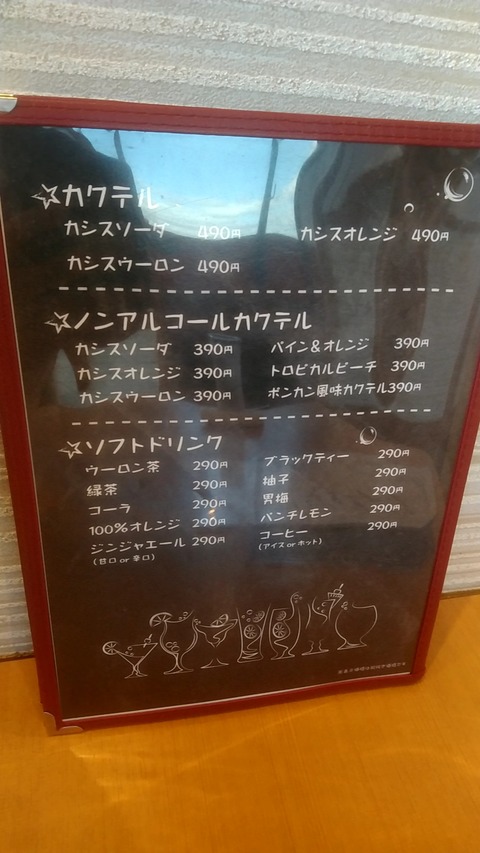 ☆カクテル
カシスソーダ 490円 カシスオレンジ 490円
カシスウーロン 490円
☆ノンアルコールカクテル
カシスソーダ 390円 パイン&オレンジ 390円
カシスオレンジ 390円 トロピカルピーチ 390円
カシスウーロン 390円 ポンカン風味カクテル390円
☆ソフトドリンク
ウーロン茶 290円 ブラックティー 290円
緑茶 290円 柚子 290円
コーラ 290円 男梅 290円
100%オレンジ 290円 パンチレモン 290円
ジンジャエール 290円 コーヒー 290円
(甘口 or 辛口) (アイス or ホット)